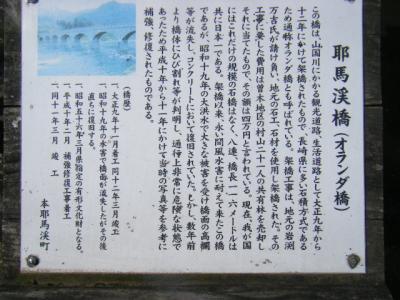 耶馬渓橋（オランダ橋）
この橋は、山国川にかかる観光道路、生活道路として大正九年から
十二年にかけて架橋されたもので、長崎県に多い石積方式である
ため通称オランダ橋とも呼ばれている。架橋工事は、地元の岩渕
万吉氏が請け負い、地元の石工、石材を使用し架橋された。その
工事に要した費用は曽木地区の村山二十一人の共有林を売却し
それに当てたもので、その額は四万円と言われている。現在、我が国
にはこれだけの規模の石橋はなく、八連、橋長一一六メートルは
共に日本一である。架橋以来、永い間風水害に耐えて来たこの橋
であるが、昭和十九年の大洪水で大きな被害を受け橋面の高欄
等が流失し、コンクリートにおいて復旧されていた。しかし、数年前
より橋体にひび割れ等が判明し、通行上非常に危険な状態で
あったため平成十年から十一年にかけて当時の写真等を参考に
補強、修復されたものである。
（橋歴）
一、大正九年十一月着工 同十二年三月竣工
一、昭和十九年の水害で橋面が流失したがその後
直ちに復旧する。
一、昭和五十六年三月県指定の有形文化財となる。
一、平成十年二月 補強修復工事着工
一、同十一年三月 竣工
本耶馬渓町